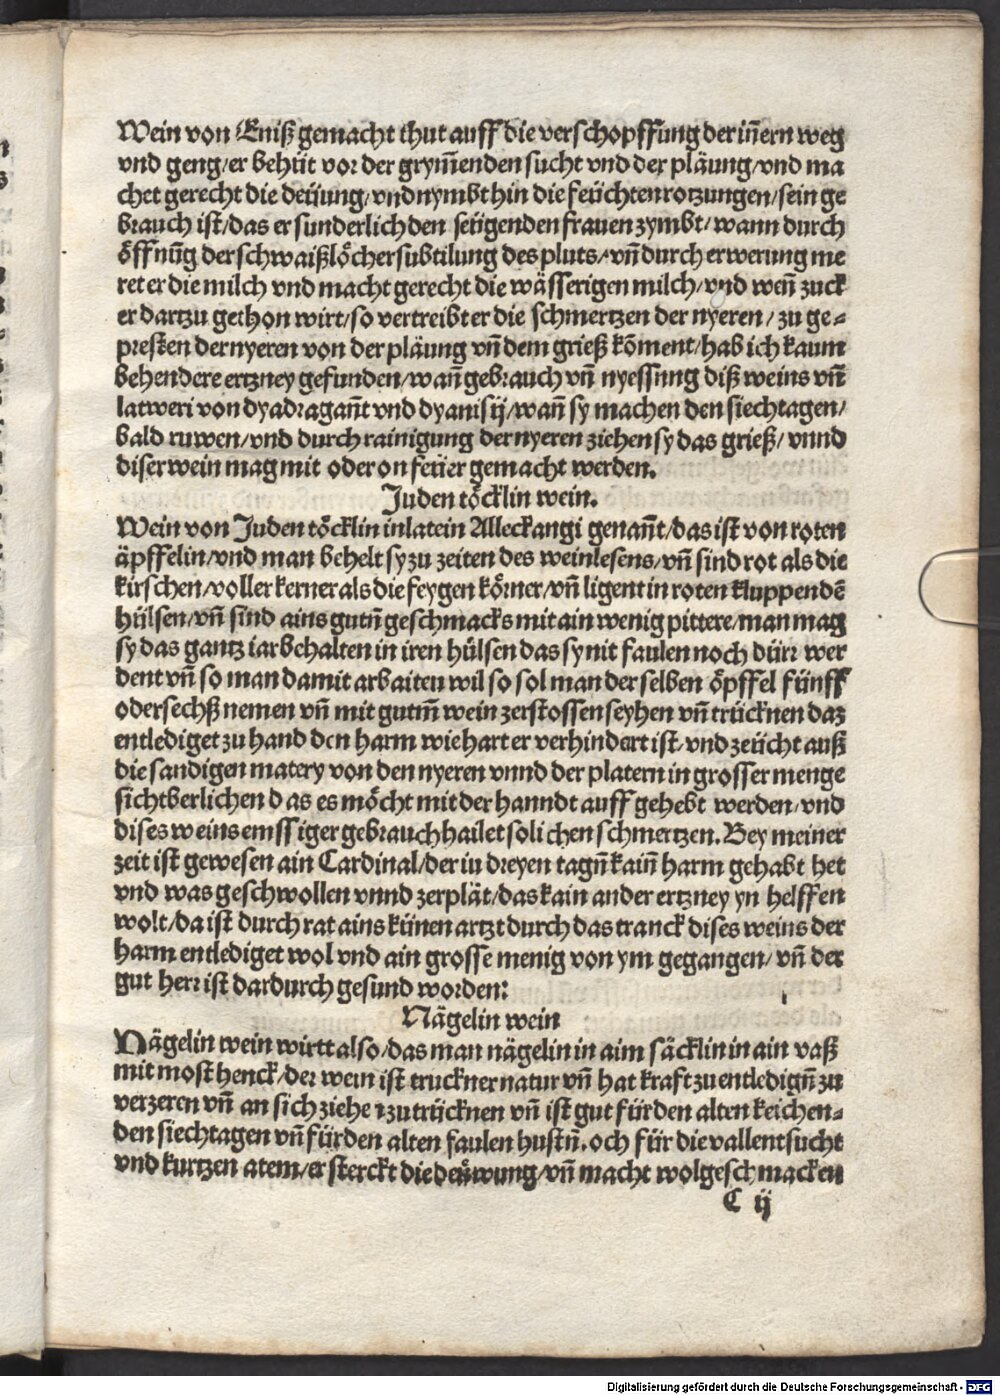 Wein von Eniß gemacht thut auff die verschopffung der iñern weg
vnd geng/er behüt vor der grym̃enden sucht vnd der pläung/vnd ma
chet gerecht die deüung/vnd nymbt hin die feüchten rotzungen/sein ge
brauch ist/das er sunderlich den seügenden frauen zymbt/wann durch
öffnũg der schwaißlöcher subtilung des pluts/vñ durch erwerung me
ret er die milch vnd macht gerecht die wässerigen milch/vnd weñ zuck
er dartzu gethon wirt/so vertreibt er die schmertzen der nyeren/zu ge⸗
presten der nyeren von der pläung vñ dem grieß kõment/hab ich kaum
behendere ertzney gefunden/wañ gebrauch vñ nyessung diß weins vñ
latweri von dyadragañt vnd dyanisij/wañ sy machen den siechtagen/
bald ruwen/vnd durch rainigung der nyeren ziehen sy das grieß/vnnd
diser wein mag mit oder on feüer gemacht werden.
Juden töcklin wein.
Wein von Juden töcklin in latein Alleckangi genañt/das ist von roten
äpffelin/vnd man behelt sy zu zeiten des weinlesens/vñ sind rot als die
kirschen/voller kerner als die feygen körner/vñ ligent in roten kluppendẽ
hülsen/vñ sind ains gutñ geschmacks mit ain wenig pittere/man mag
sy das gantz iar behalten in iren hülsen das sy nit faulen noch dürr wer
dent vñ so man damit arbaiten wil so sol man der selben öpffel fünff
oder sechß nemen vñ mit gutm̃ wein zerstossen seyhen vñ trücknen daz
entlediget zu hand den harm wie hart er verhindert ist/vnd zeücht auß
die sandigen matery von den nyeren vnnd der platern in grosser menge
sichtberlichen das es möcht mit der hanndt auff gehebt werden/vnd
dises weins emssiger gebrauch hailet solichen schmertzen. Bey meiner
zeit ist gewesen ain Cardinal/der in dreyen tagñ kaiñ harm gehabt het
vnd was geschwollen vnnd zerplät/das kain ander ertzney yn helffen
wolt/da ist durch rat ains künen artzt durch das tranck dises weins der
harm entlediget wol vnd ain grosse menig von ym gegangen/vñ der
gut herr ist dardurch gesund worden:
Nägelin wein
Nägelin wein wirtt also/das man nägelin in aim säcklin in ain vaß
mit most henck/der wein ist truckner natur vñ hat kraft zu entledigñ zu
verzeren vñ an sich ziehe ꝛ zu trücknen vñ ist gut für den alten keichen⸗
den siechtagen vñ für den alten faulen hustñ. och für die vallent sucht
vnd kurtzen atem/er sterckt die deäwung/vñ macht wolgeschmacken
C ij
Digitalisierung gefördert durch die Deutsche Forschungsgemeinschaft - DFG